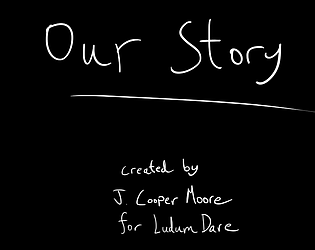 Our Story
created by
J. Cooper Moore
for Ludum Dare